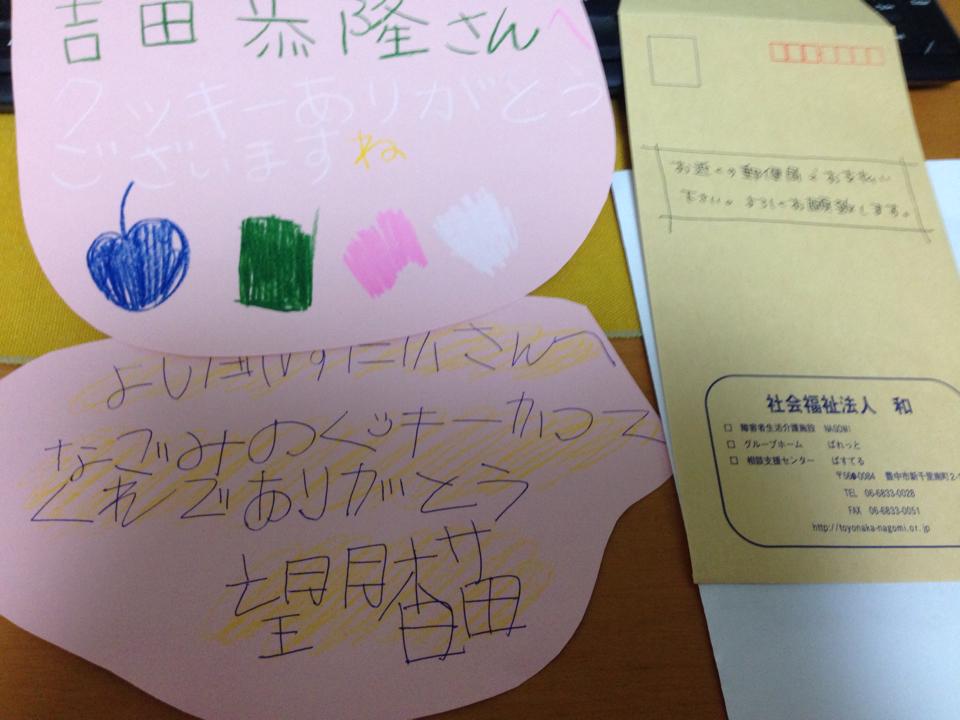 吉田恭隆さんへ
クッキーありがとう
ございますね
よしだやすたかさんへ
なごみのくッキーかって
くれてありがとう
望月香苗
お近くの郵便局でお支払い
下さい。よろしくお願い致します。
社会福祉法人 和
□ 障害者生活介護施設 NAGOMI
□ グループホーム ぱれっと
□ 相談支援センター ぱすてる
〒560-0084 豊中市新千里南町2-1
TEL 06-6833-0028
FAX 06-6833-0051
http://toyonaka-nagomi.or.jp